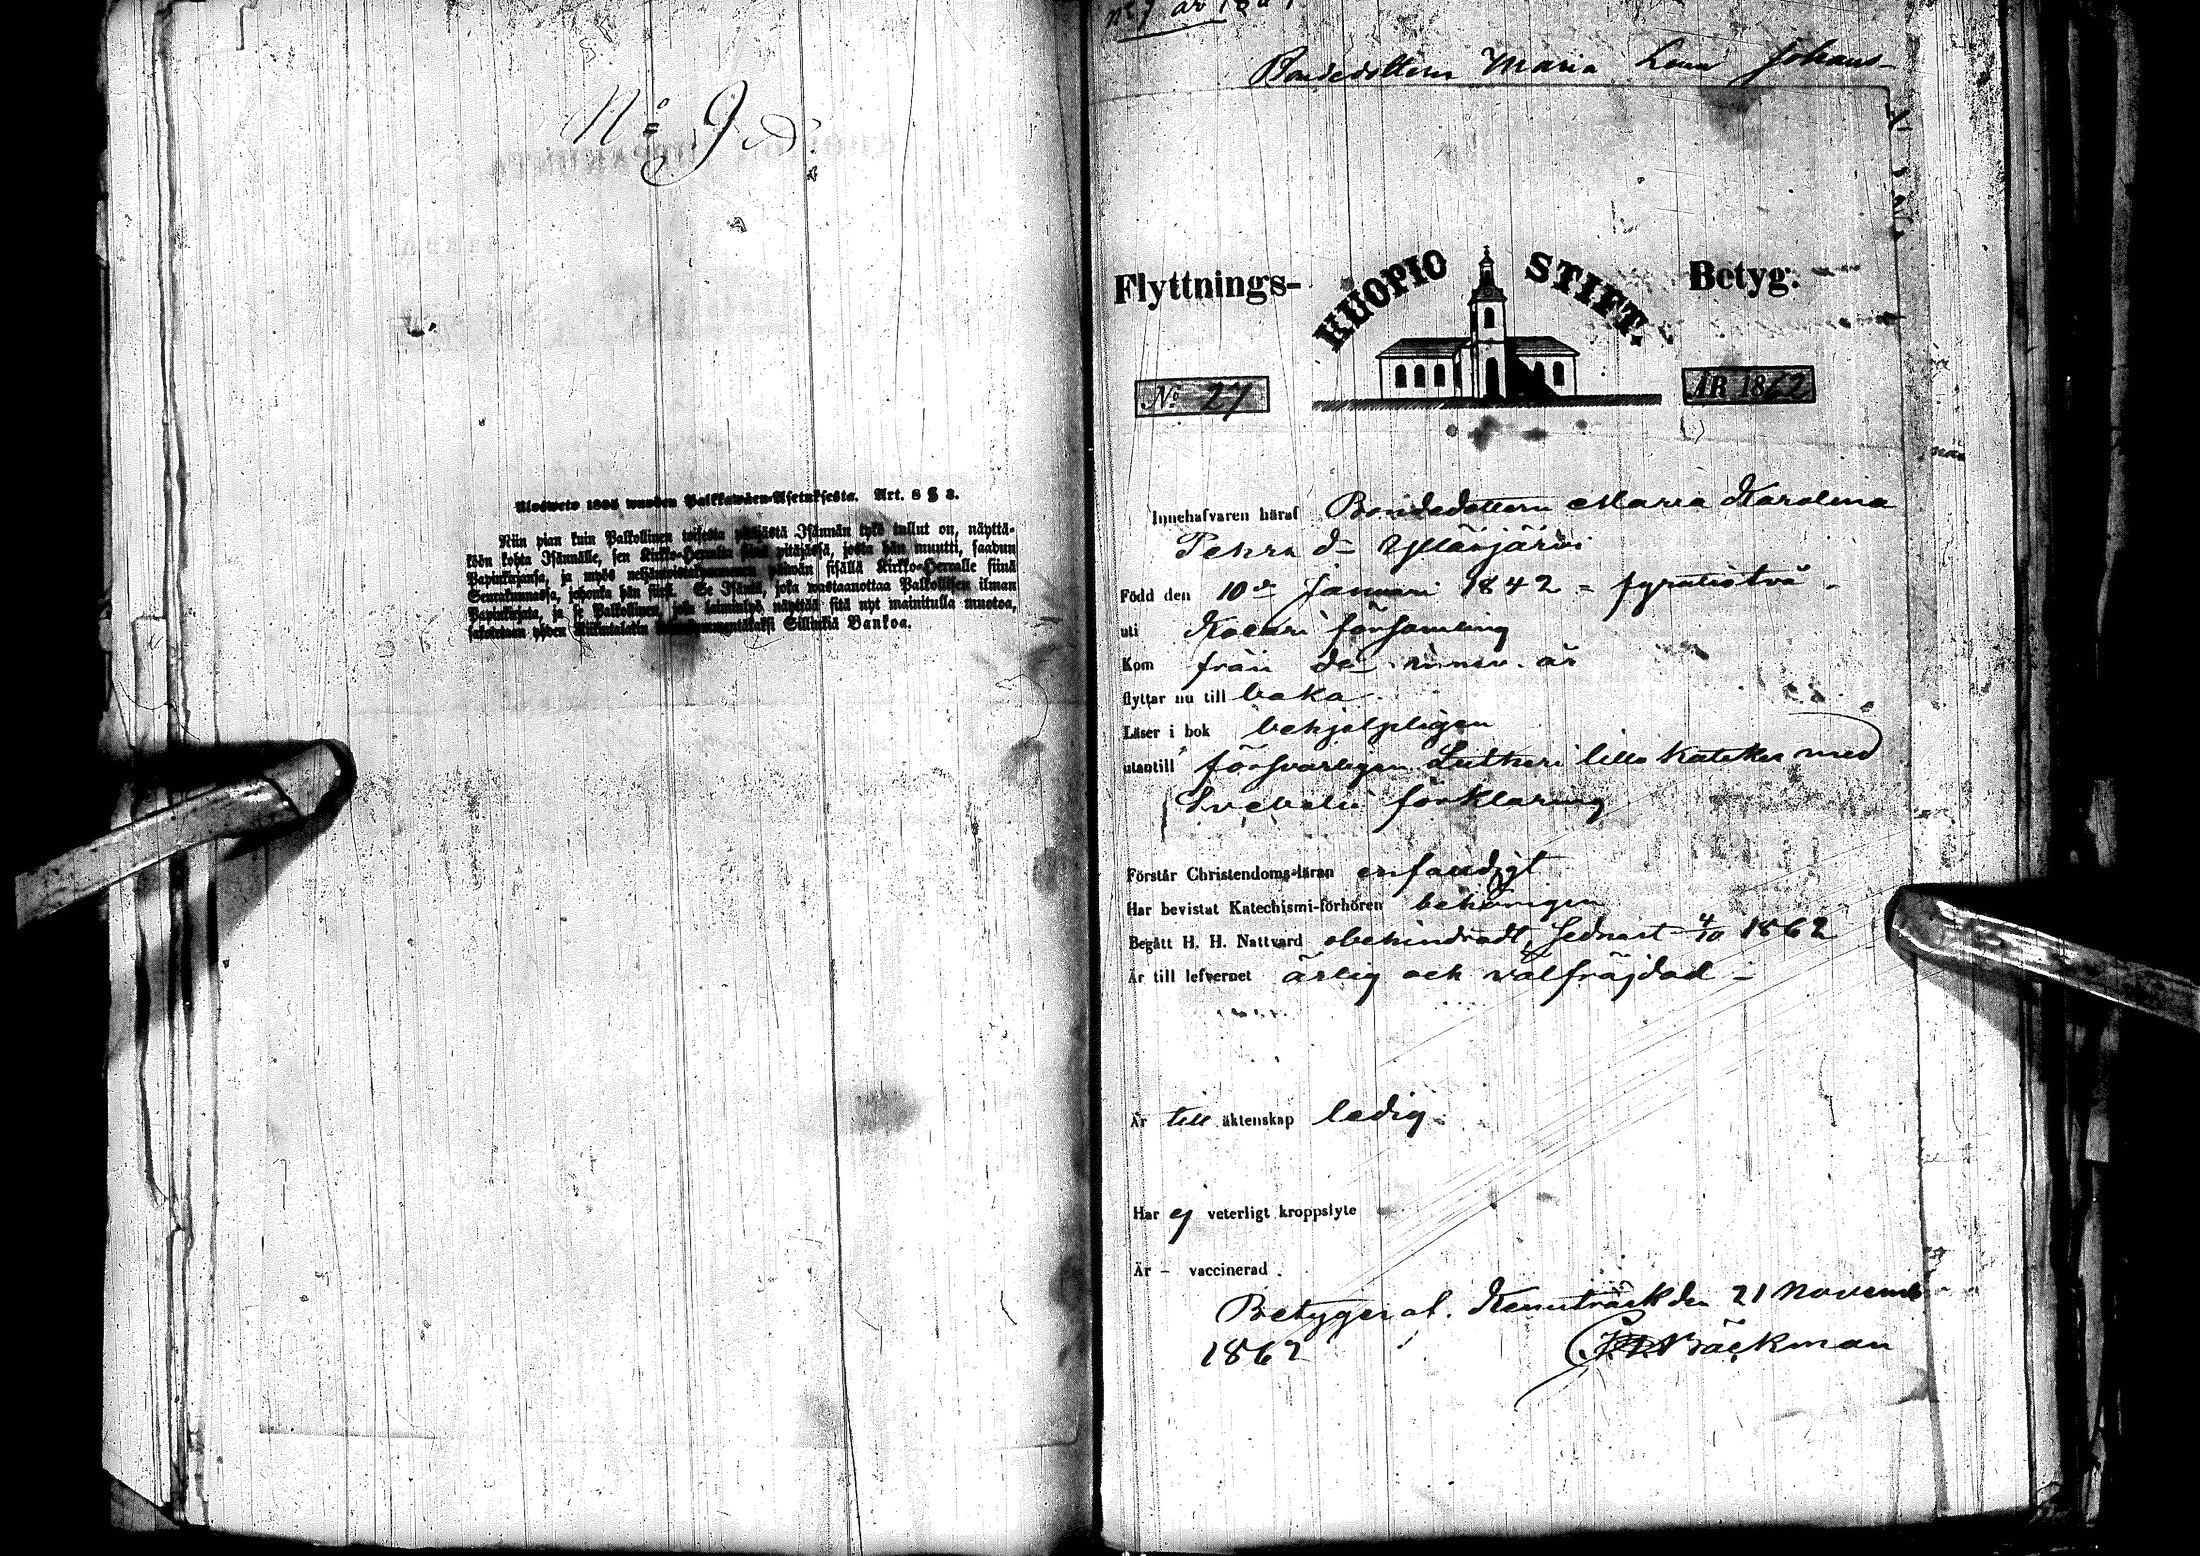 Nº 9
Ulosweto 1805 wuoden Palkkawäen-Asetuksesta. Art. 8 § 3.
Niin pian kuin Palkollinen toisesta pitäjästä Isännän tykö tullut on, näyttä-
köön kohta Isännälle, sen Kirkko-Herralta siinä pitäjässä, josta hän muutti, saadun
Papinkirjansa, ja myös neljäntoistakymmenen päiwän sisällä Kirkko-Herralle siinä
Seurakunnassa, johonka hän siirsi. Se Isäntä, joka wastaanottaa Palkollisen ilman
Papinkirjata, ja se Palkollinen, joka laiminlyö näyttää sitä nyt mainitulla muotoa,
sakotetaan yhden Riikintalarin Sillinkiä Bankoa.
Bondedottern Maria Lena Johans-
Flyttnings- KUOPIO STIFT. Betyg:
Nº 27 ÅR 1862
Innehafvaren häraf Bondedottern Maria Karolina
Pehrs d. Ylläsjärvi
Född den 10de Januari 1842 = fyratiotvå
uti Kolari församling
Kom från d. år
flyttar nu till baka
Läser i bok behjelpligen
utantill försvarligen Lutheri lilla kateches med
Svebelii förklaring
Förstår Christendoms-läran enfaldigt
Har bevistat Katechismi-förhören behörigen
Begått H. H. Nattvard obehindradt, sednast 4/10 1862
Är till lefvernet ärlig och välfräjdad
Är till äktenskap ledig.
Har ej veterligt kroppslyte
Är – vaccinerad
Betyger af. Kemiträsk den 21 Novemb
1862 Bäckman